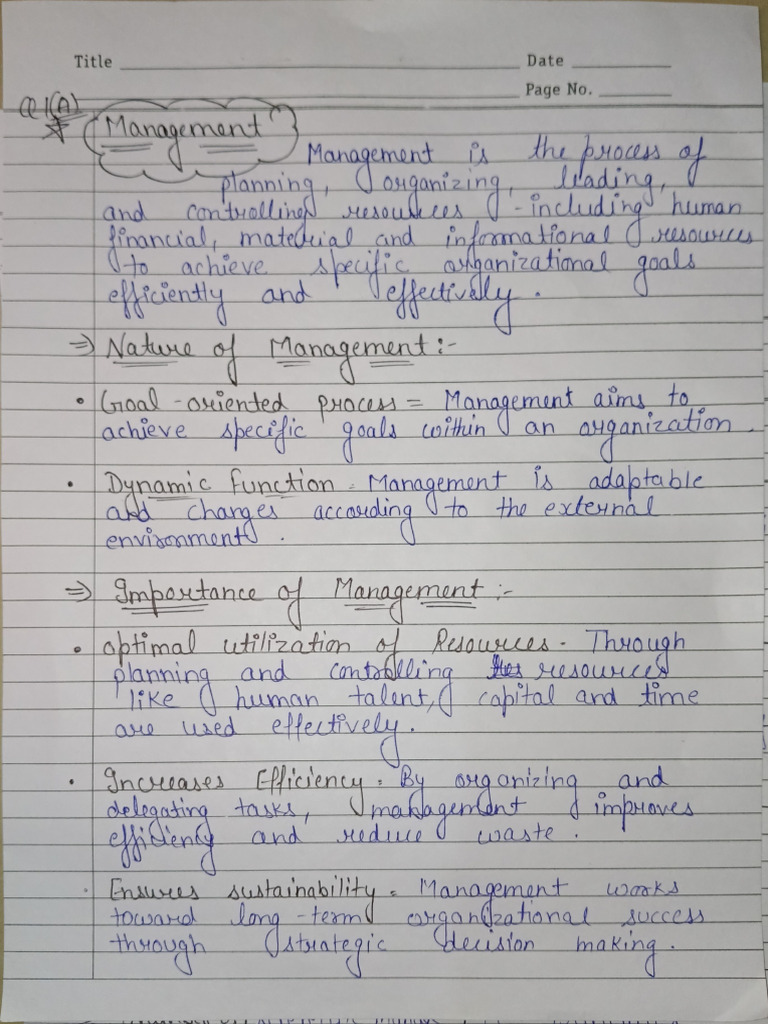 Title
Date
Page No.
Q1(A)
Management
Management is the process of
planning, organizing, leading,
and controlling resources - including human
financial, material and informational resources
to achieve specific organizational goals
efficiently and effectively.
⇒ Nature of Management :-
• Goal - oriented process = Management aims to
achieve specific goals within an organization.
• Dynamic function = Management is adaptable
and changes according to the external
environment.
⇒ Importance of Management :-
• optimal utilization of Resources - Through
planning and controlling resources
like human talent, capital and time
are used effectively.
• Increases Efficiency = By organizing and
delegating tasks, management improves
efficiency and reduce waste.
• Ensures sustainability = Management works
toward long-term organizational success
through strategic decision making.